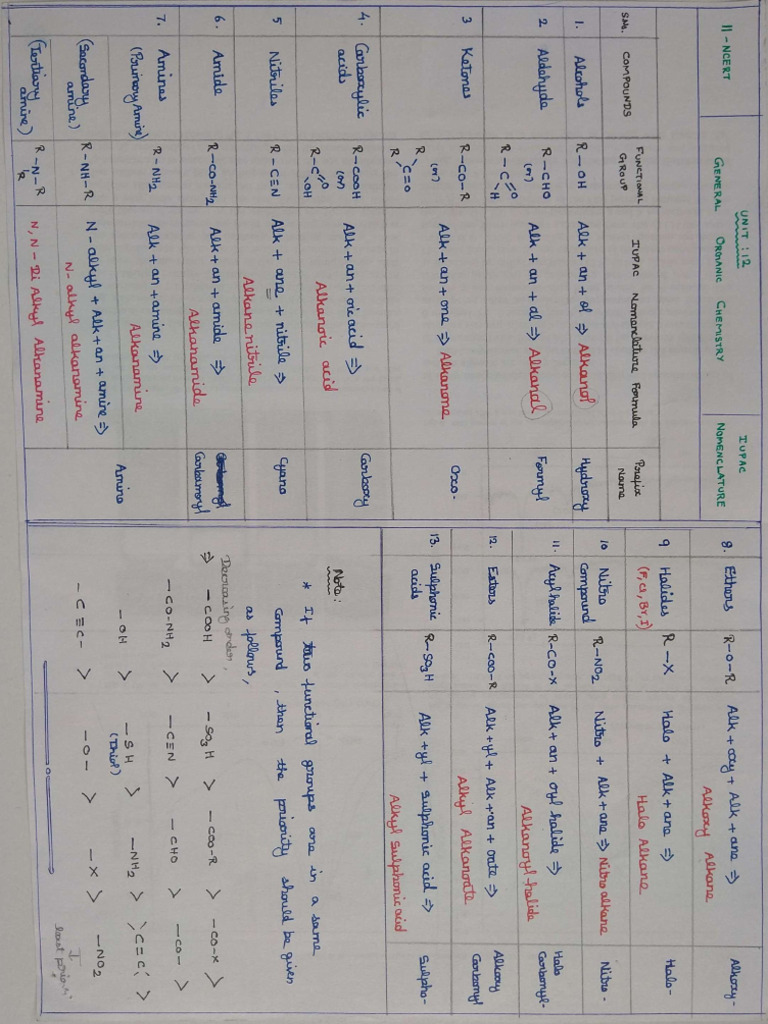 11-NCERT
UNIT : 12
GENERAL ORGANIC CHEMISTRY
IUPAC
NOMENCLATURE
S.No. COMPOUNDS FUNCTIONAL GROUP IUPAC Nomenclature Formula Prefix Name
1. Alcohols R-OH Alk + an + ol ⇒ Alkanol Hydroxy
2 Aldehyde R-CHO (or) R-C=O H Alk + an + al ⇒ Alkanal Formyl
3 Ketones R-CO-R (or) R R C=O Alk + an + one ⇒ Alkanone Oxo-
4. Carboxylic acids R-COOH (or) R-C=O OH Alk + an + oic acid ⇒ Alkanoic acid Carboxy
5 Nitriles R-C≡N Alk + ane + nitrile ⇒ Alkane nitrile Cyano
6. Amide R-CO-NH2 Alk + an + amide ⇒ Alkanamide Carbamoyl
7. Amines (Primary Amine) R-NH2 Alk + an + amine ⇒ Alkanamine Amino
(Secondary amine) R-NH-R N-alkyl + Alk + an + amine ⇒ N-alkyl alkanamine
(Tertiary amine) R-N-R R N, N-Di Alkyl Alkanamine
8. Ethers R-O-R Alk + oxy + Alk + ane ⇒ Alkoxy Alkane Alkoxy-
9 Halides (F, Cl, Br, I) R-X Halo + Alk + ane ⇒ Halo Alkane Halo-
10 Nitro Compound R-NO2 Nitro + Alk + ane ⇒ Nitro alkane Nitro-
11. Acyl halide R-CO-X Alk + an + oyl halide ⇒ Alkanoyl-halide Halo Carbonyl-
12. Esters R-COO-R Alk + yl + Alk + an + oate ⇒ Alkyl Alkanoate Alkoxy Carbonyl
13. Sulphonic acids R-SO3H Alk + yl + Sulphonic acid ⇒ Alkyl Sulphonic acid Sulpho-
Note:
* If two functional groups are in a same
Compound, then the priority should be given
as follows,
Decreasing order,
⇒ -COOH > -SO3H > -COO-R > -CO-X >
-CO-NH2 > -C≡N > -CHO > -CO- >
-OH > -SH (Thiol) > -NH2 > C=C >
-C≡C- > -O- > -X > -NO2
↓
least